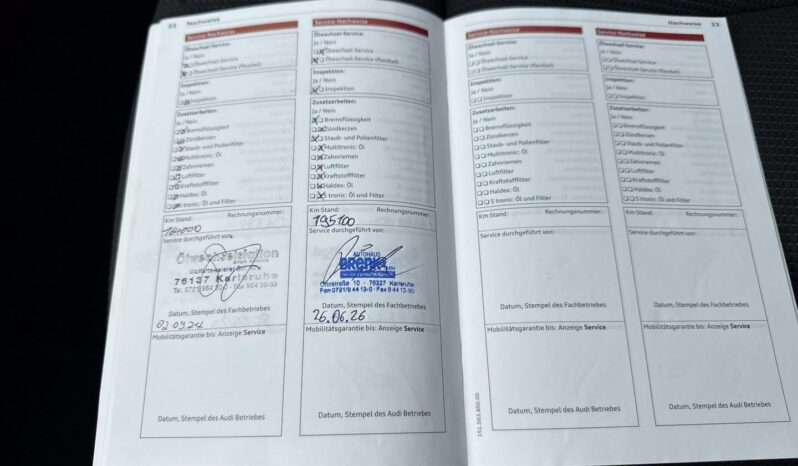 22 Nachweise
Service-Nachweise
Ölwechsel-Service:
Ja / Nein
Ölwechsel-Service
Ölwechsel-Service (flexibel)
Inspektion:
Ja / Nein
Inspektion
Zusatzarbeiten:
Ja / Nein
Bremsflüssigkeit
Zündkerzen
Staub- und Pollenfilter
Multitronic: Öl
Zahnriemen
Luftfilter
Kraftstofffilter
Haldex: Öl
S tronic: Öl und Filter
Km Stand: Rechnungsnummer:
Service durchgeführt von:
Ölwechselstation
76137 Karlsruhe
Datum, Stempel des Fachbetriebes
02.09.24
Mobilitätsgarantie bis: Anzeige Service
Datum, Stempel des Audi Betriebes
Service-Nachweise
Ölwechsel-Service:
Ja / Nein
Ölwechsel-Service
Ölwechsel-Service (flexibel)
Inspektion:
Ja / Nein
Inspektion
Zusatzarbeiten:
Ja / Nein
Bremsflüssigkeit
Zündkerzen
Staub- und Pollenfilter
Multitronic: Öl
Zahnriemen
Luftfilter
Kraftstofffilter
Haldex: Öl
S tronic: Öl und Filter
Km Stand: Rechnungsnummer:
195100
Service durchgeführt von:
AUTOHAUS
Ottostraße 10 · 76227 Karlsruhe
Fon 0721/9 44 13-0 · Fax 9 44 13-90
Datum, Stempel des Fachbetriebes
26.06.26
Mobilitätsgarantie bis: Anzeige Service
Datum, Stempel des Audi Betriebes
Nachweise 23
Service-Nachweise
Ölwechsel-Service:
Ja / Nein
Ölwechsel-Service
Ölwechsel-Service (flexibel)
Inspektion:
Ja / Nein
Inspektion
Zusatzarbeiten:
Ja / Nein
Bremsflüssigkeit
Zündkerzen
Staub- und Pollenfilter
Multitronic: Öl
Zahnriemen
Luftfilter
Kraftstofffilter
Haldex: Öl
S tronic: Öl und Filter
Km Stand: Rechnungsnummer:
Service durchgeführt von:
Datum, Stempel des Fachbetriebes
Mobilitätsgarantie bis: Anzeige Service
Datum, Stempel des Audi Betriebes
151.563.850.00
Service-Nachweise
Ölwechsel-Service:
Ja / Nein
Ölwechsel-Service
Ölwechsel-Service (flexibel)
Inspektion:
Ja / Nein
Inspektion
Zusatzarbeiten:
Ja / Nein
Bremsflüssigkeit
Zündkerzen
Staub- und Pollenfilter
Multitronic: Öl
Zahnriemen
Luftfilter
Kraftstofffilter
Haldex: Öl
S tronic: Öl und Filter
Km Stand: Rechnungsnummer:
Service durchgeführt von:
Datum, Stempel des Fachbetriebes
Mobilitätsgarantie bis: Anzeige Service
Datum, Stempel des Audi Betriebes